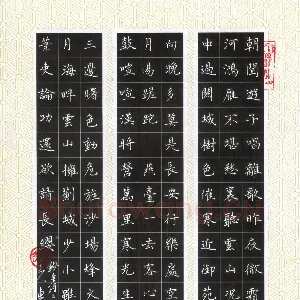 朝聞遊子唱離歌昨夜微
河鴻雁不堪愁裏聽雲山
中過關城樹色催寒近御苑
向晚多莫是長安行樂處空
月易蹉跎燕臺一去客心
鼓喧喧漢將營萬里寒光生
三邊曙色動危旌沙場烽火
月海畔雲山擁薊城少小雖
筆吏論功還欲請長纓